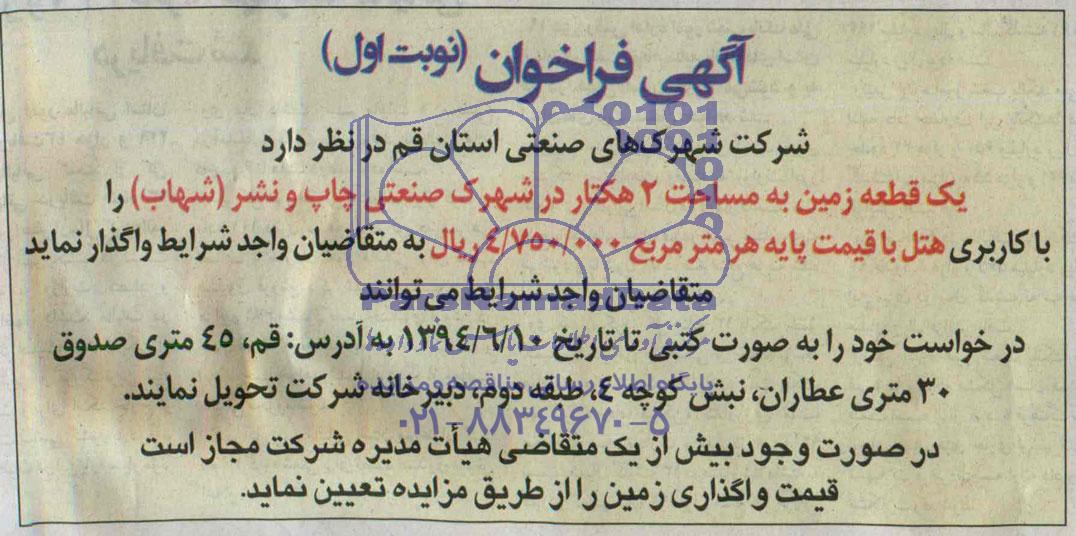 آگهی فراخوان (نوبت اول)
شرکت شهرک‌های صنعتی استان قم در نظر دارد
یک قطعه زمین به مساحت ۲ هکتار در شهرک صنعتی چاپ و نشر (شهاب) را
با کاربری هتل با قیمت پایه هر متر مربع ۴/۷۵۰/۰۰۰ ریال به متقاضیان واجد شرایط واگذار نماید
متقاضیان واجد شرایط می‌توانند
در خواست خود را به صورت کتبی تا تاریخ ۱۳۹۴/۶/۱۰ به آدرس: قم، ۴۵ متری صدوق
۳۰ متری عطاران، نبش کوچه ۴، طبقه دوم، دبیرخانه شرکت تحویل نمایند.
پایگاه اطلاع رسانی مناقصه و مزایده
۰۲۱-۸۸۳۴۹۶۷۰-۵
در صورت وجود بیش از یک متقاضی هیأت مدیره شرکت مجاز است
قیمت واگذاری زمین را از طریق مزایده تعیین نماید.